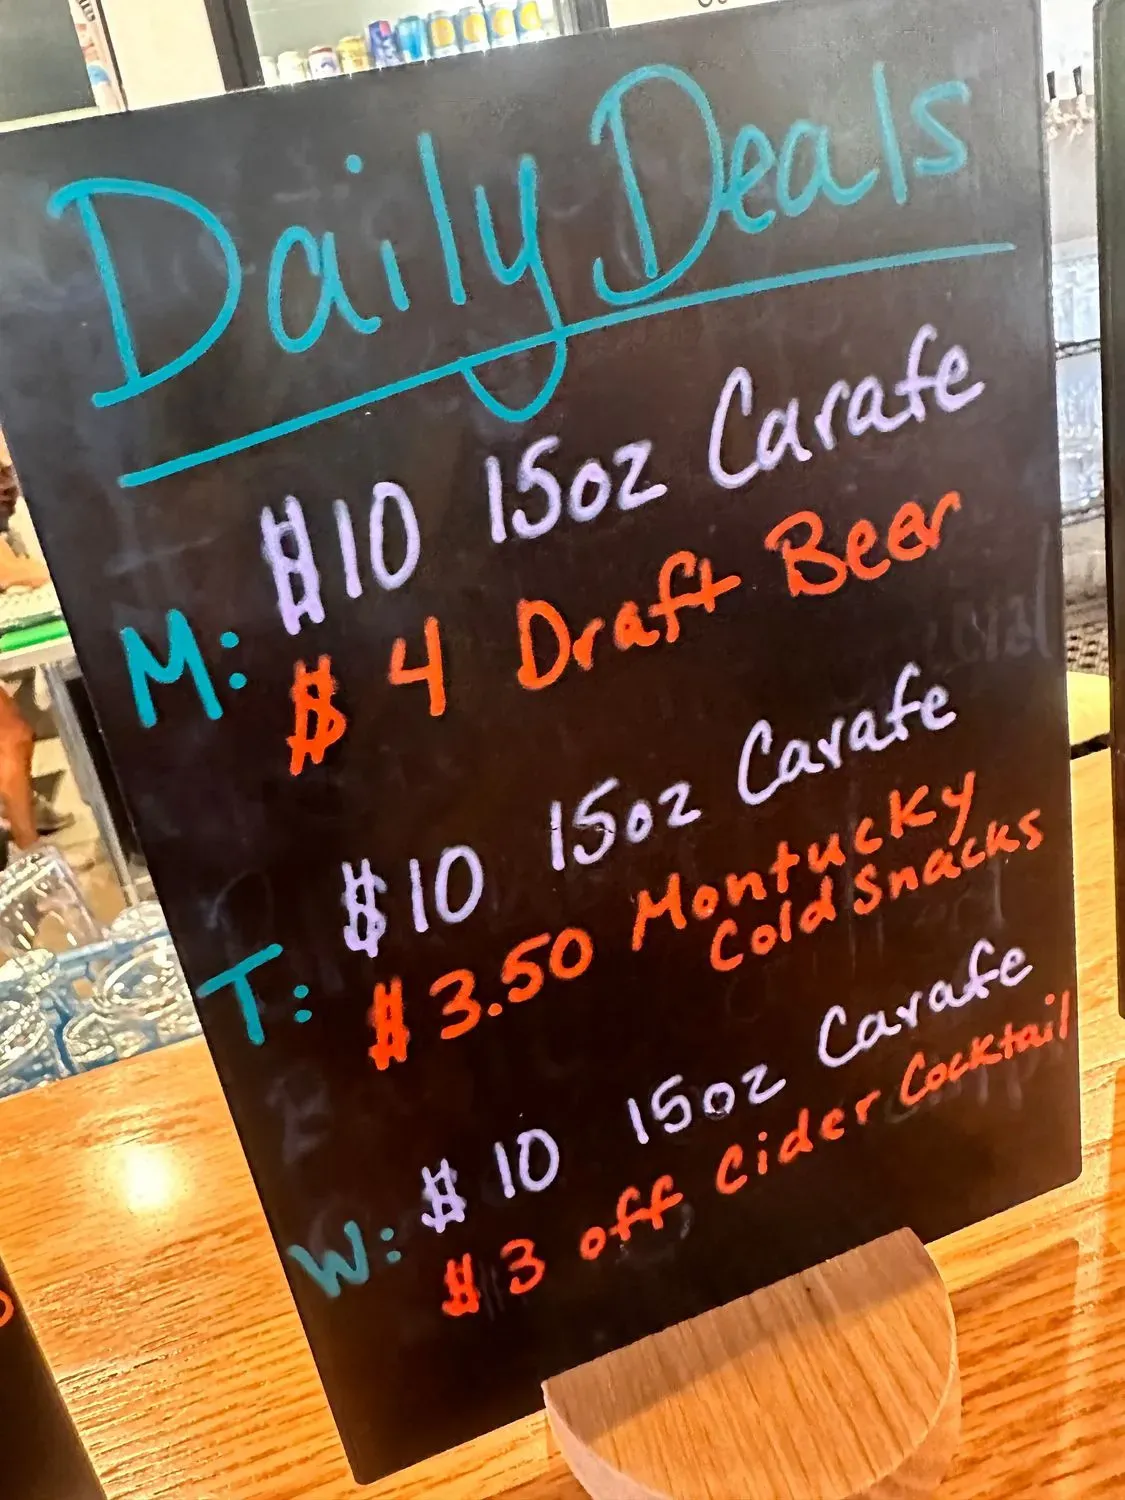 Daily Deals
M: $10 15oz Carafe
$4 Draft Beer
T: $10 15oz Carafe
$3.50 Montucky
Cold Snacks
W: $10 15oz Carafe
$3 off Cider Cocktail